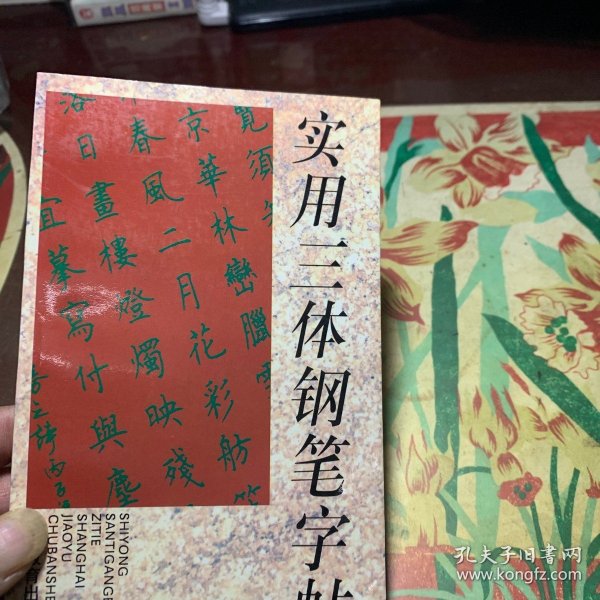 实用三体钢笔字帖
覧須
京華林巒臘
春風二月花彩舫
落日畫樓燈燭映殘
宜摹寫付與塵
SHIYONG
SANTIGANGB
ZITIE
SHANGHAI
JIAOYU
CHUBANSHE
孔夫子旧书网
www.kongfz.com